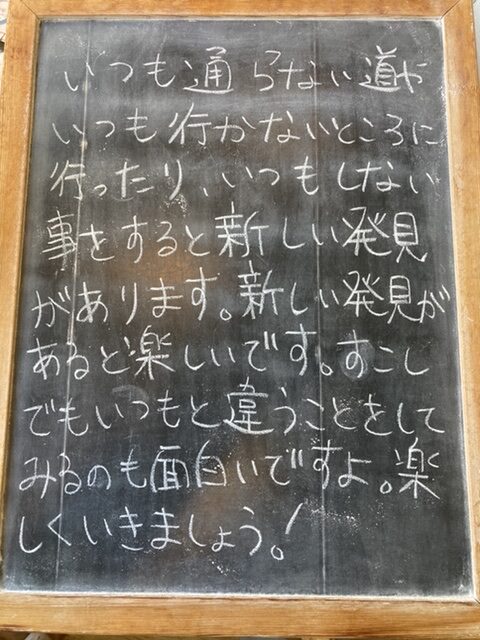 いつも通らない道や
いつも行かないところに
行ったり、いつもしない
事をすると新しい発見
があります。新しい発見が
あると楽しいです。すこし
でもいつもと違うことをして
みるのも面白いですよ。楽
しくいきましょう。!